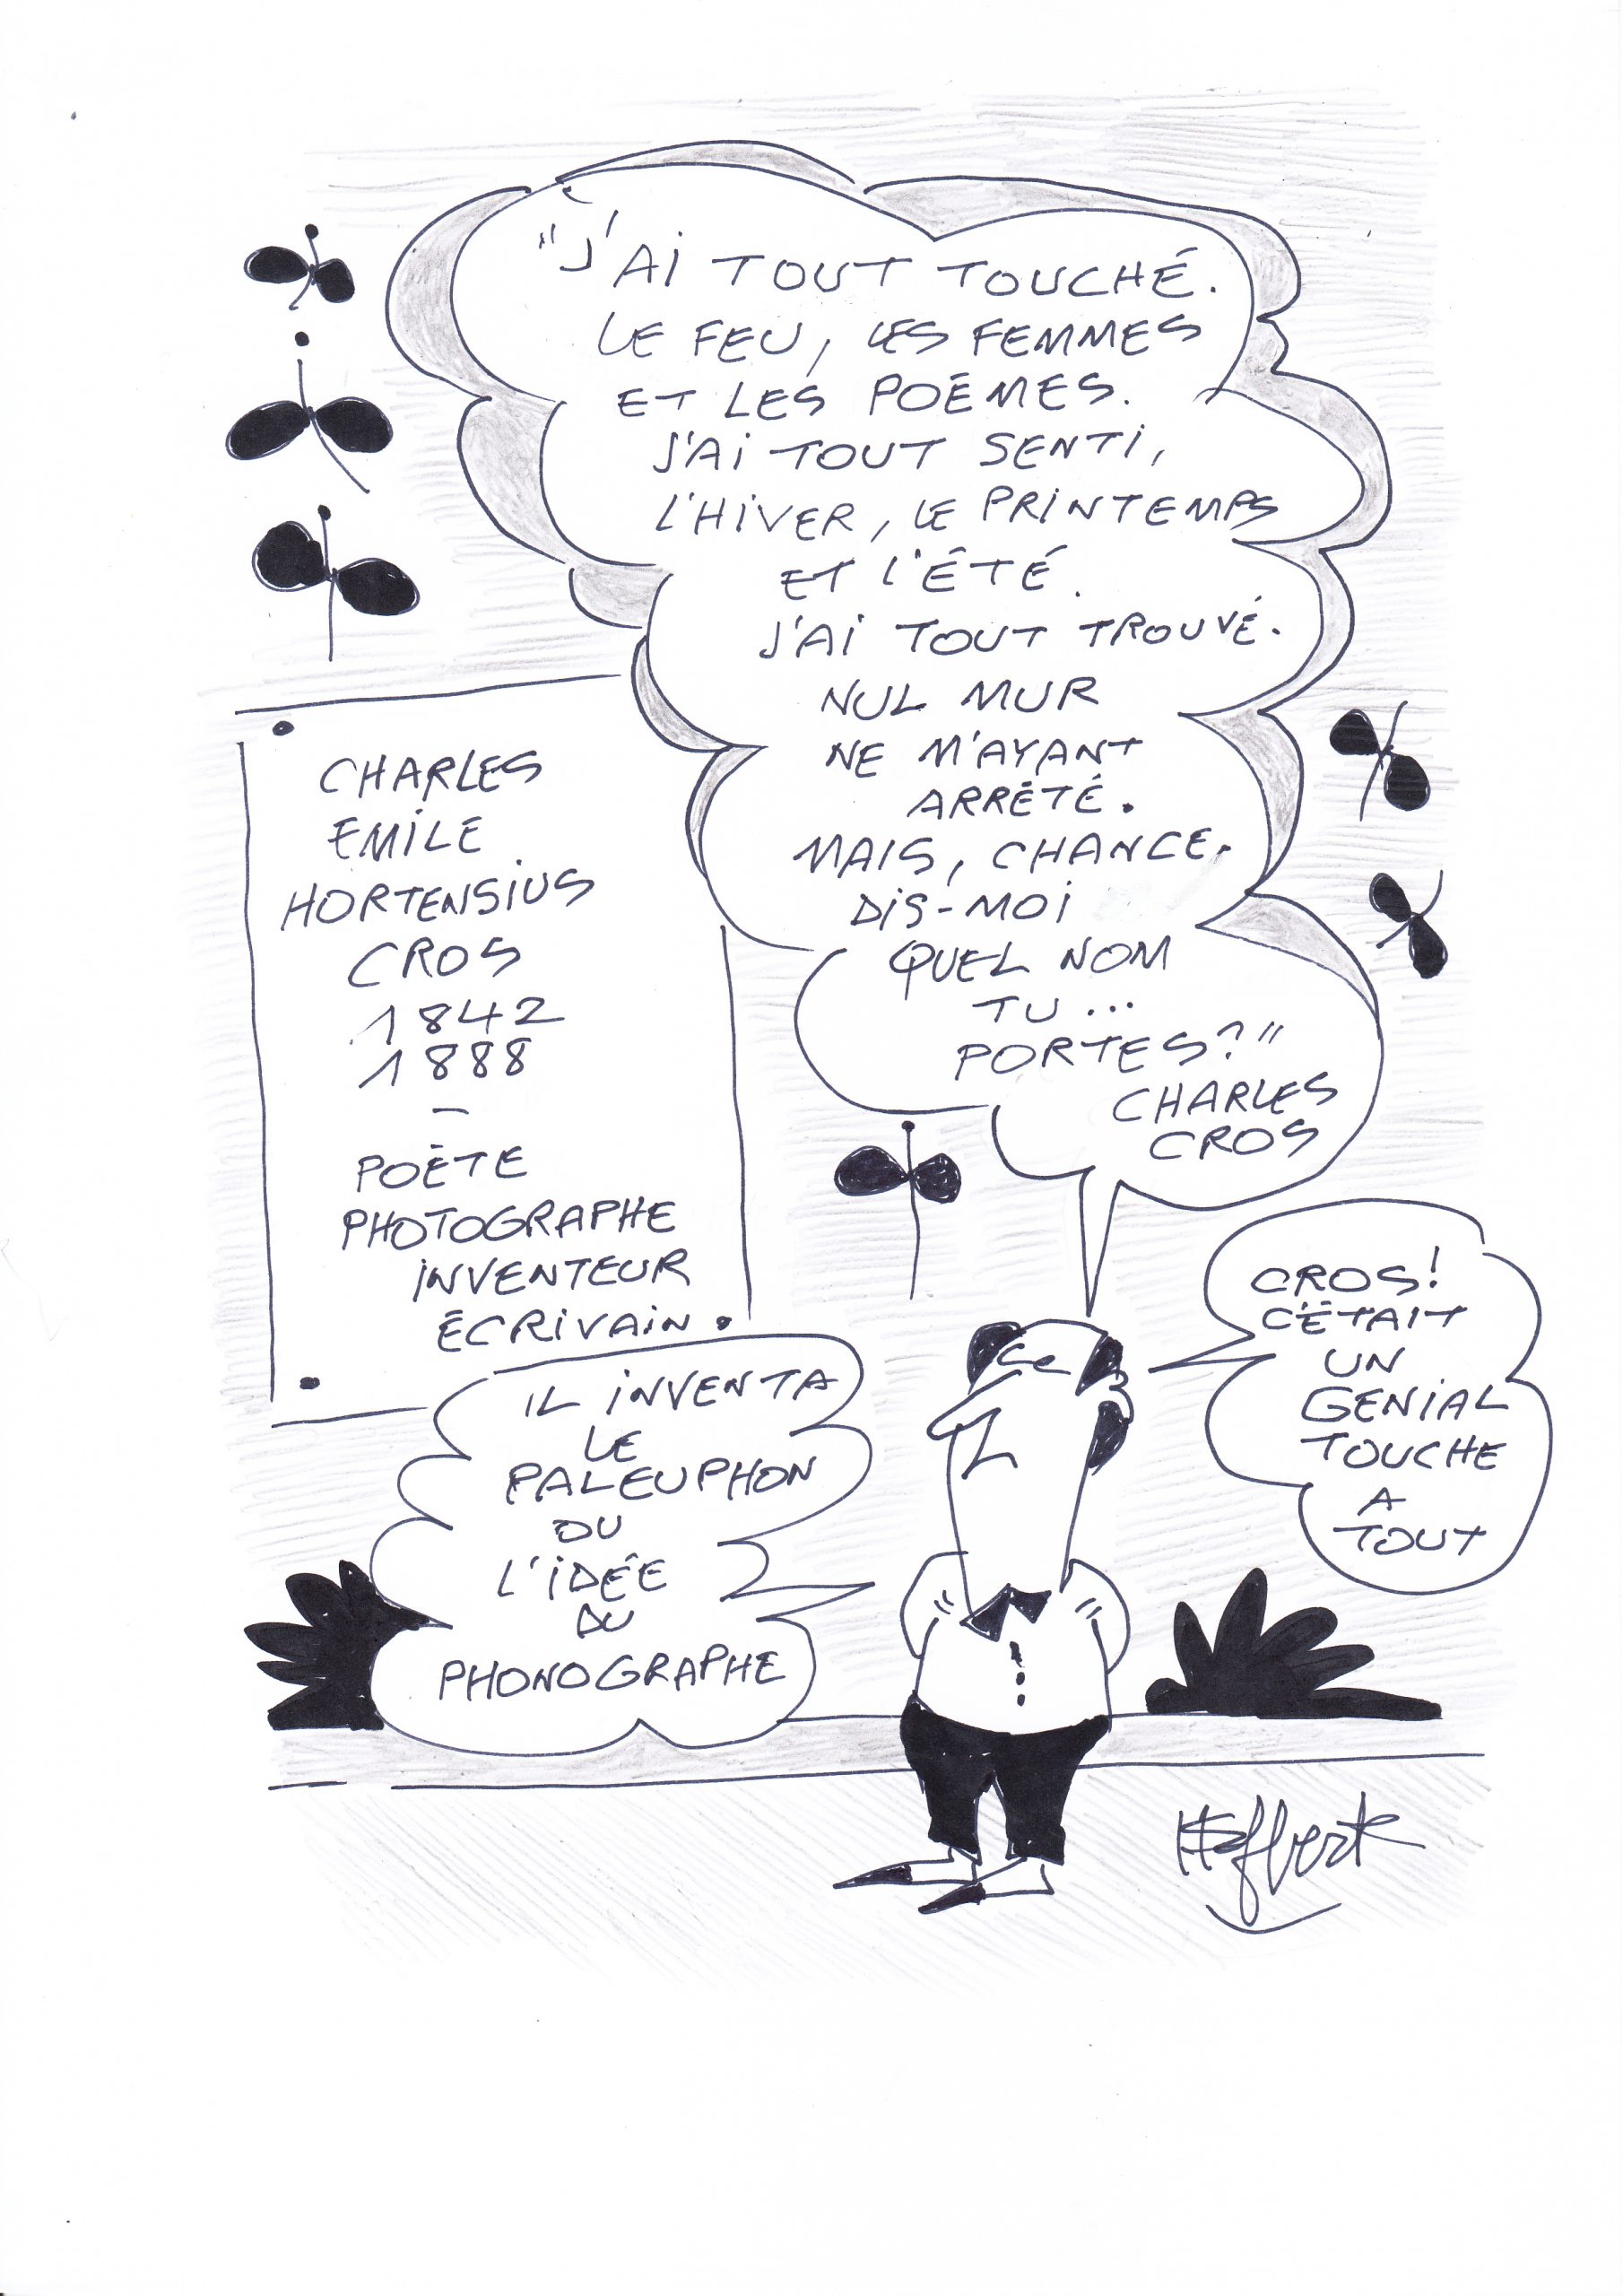 "J'AI TOUT TOUCHÉ.
LE FEU, LES FEMMES
ET LES POÉMES.
J'AI TOUT SENTI,
L'HIVER, LE PRINTEMPS
ET L'ÉTÉ.
J'AI TOUT TROUVÉ.
NUL MUR
NE M'AYANT
ARRÊTÉ.
MAIS, CHANCE.
DIS-MOI
QUEL NOM
TU...
PORTES?"
CHARLES
CROS
CHARLES
EMILE
HORTENSIUS
CROS
1842
1888
—
POÈTE
PHOTOGRAPHE
INVENTEUR
ÉCRIVAIN.
CROS!
C'ÉTAIT
UN
GENIAL
TOUCHE
A
TOUT
IL INVENTA
LE
PALEUPHON
OU
L'IDÉE
DU
PHONOGRAPHE